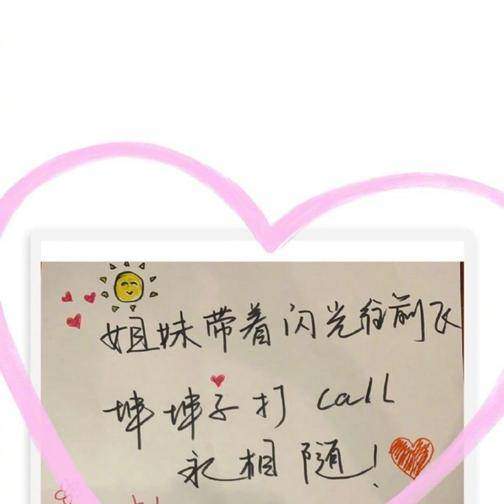 姐妹带着闪光往前飞
坤坤子打 call
永相随！